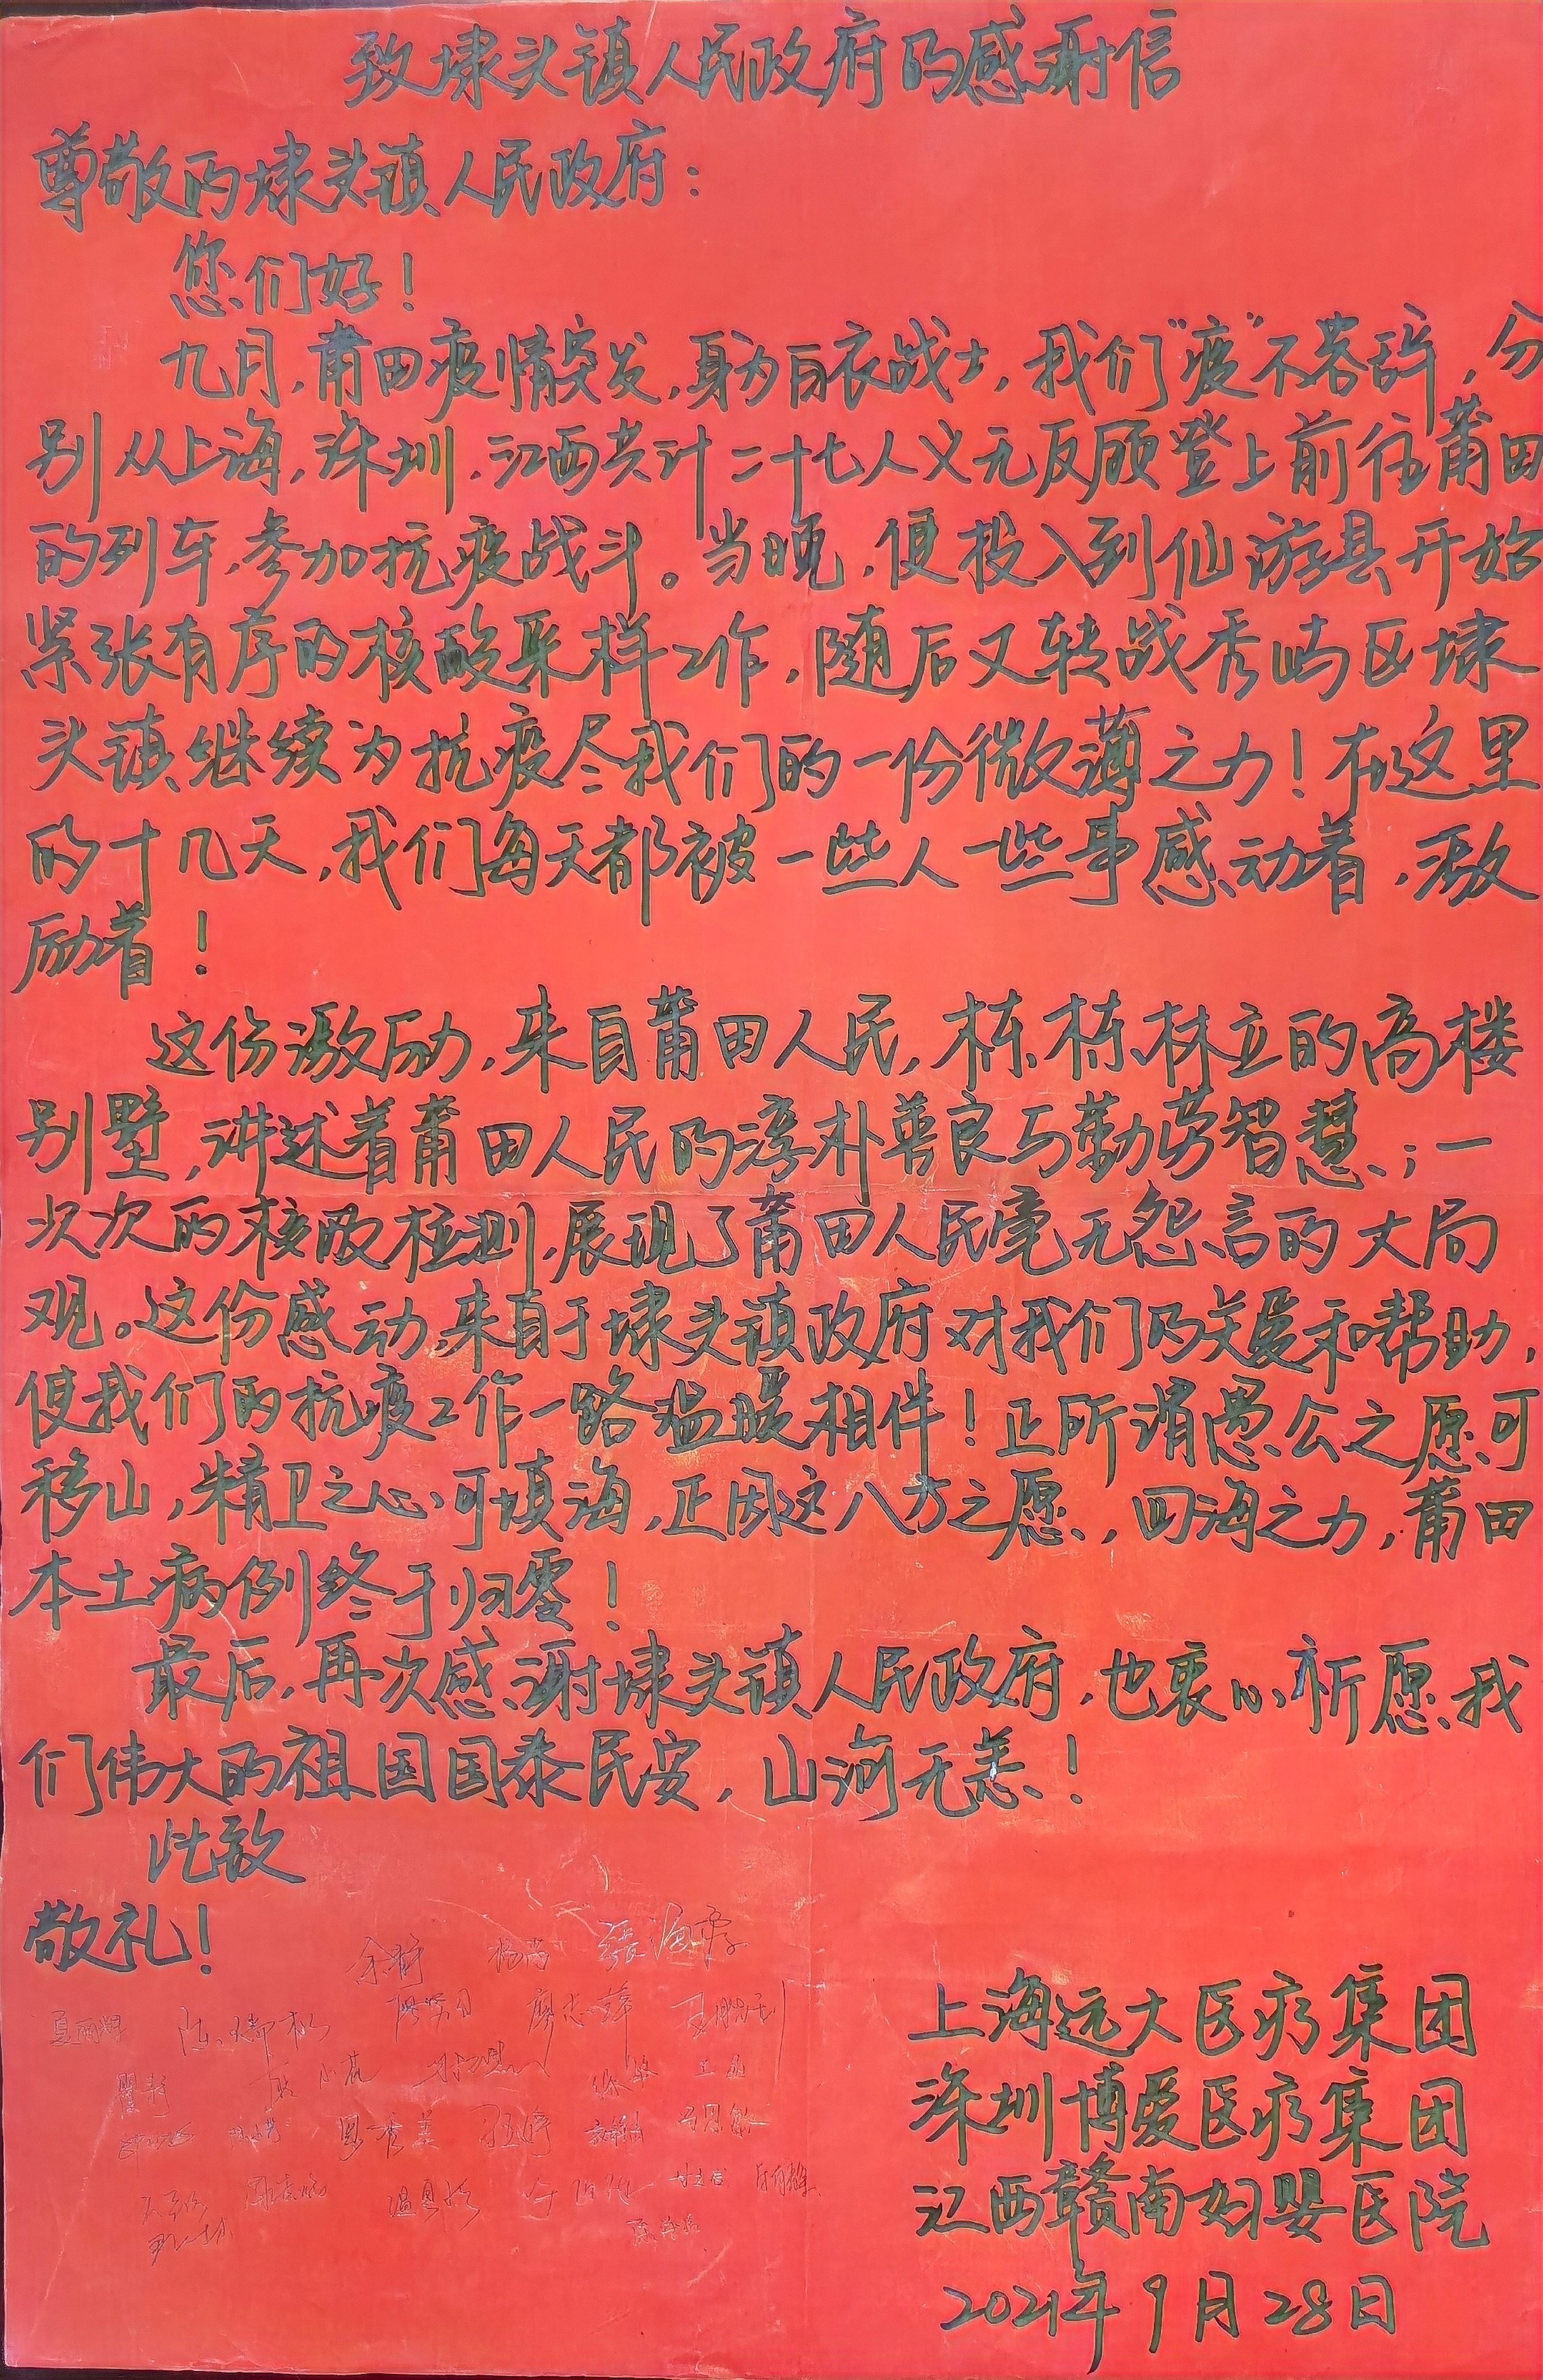 致埭头镇人民政府的感谢信
尊敬的埭头镇人民政府：
您们好！
九月，莆田疫情突发，身为白衣战士，我们“疫”不容辞，分
别从上海，深圳，江西共计二十七人义无反顾登上前往莆田
的列车，参加抗疫战斗。当晚，便投入到仙游县开始
紧张有序的核酸采样工作，随后又转战秀屿区埭
头镇继续为抗疫尽我们的一份微薄之力！在这里
的十几天，我们每天都被一些人一些事感动着，激
励着！
这份激励，来自莆田人民，栋栋林立的高楼
别墅，讲述着莆田人民的淳朴善良与勤劳智慧；一
次次的核酸检测，展现了莆田人民毫无怨言的大局
观。这份感动，来自于埭头镇政府对我们的关爱和帮助，
使我们的抗疫工作一路温暖相伴！正所谓愚公之愿可
移山，精卫之心可填海，正因这八方之愿，四海之力，莆田
本土病例终于归零！
最后，再次感谢埭头镇人民政府，也衷心祈愿我
们伟大的祖国国泰民安，山河无恙！
此致
敬礼！
余静
廖志萍
上海远大医疗集团
深圳博爱医疗集团
江西赣南妇婴医院
2021年9月28日